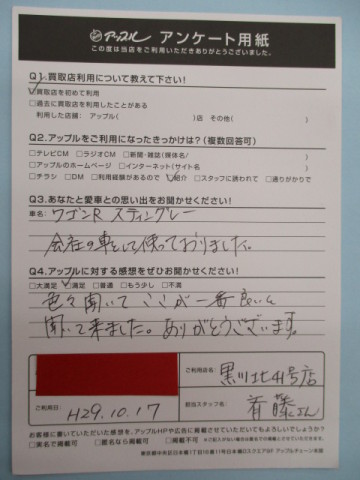 アップル アンケート用紙
この度は当店をご利用いただきありがとうございました。
Q1.買取店利用について教えて下さい!
□買取店を初めて利用
□過去に買取店を利用したことがある
利用した店舗: アップル( )店 その他( )
Q2.アップルをご利用になったきっかけは?(複数回答可)
□テレビCM □ラジオCM □新聞・雑誌(媒体名/ )
□アップルのホームページ □インターネット(サイト名 )
□チラシ □DM □利用経験があるので □紹介 □スタッフに誘われて □通りがかりで
Q3.あなたと愛車との思い出をお聞かせください!
車名: ワゴンR スティングレー
会社の車として使っておりました。
Q4.アップルに対する感想をぜひお聞かせください!
□大満足 □満足 □普通 □もう少し □不満
色々聞いてここが一番良いと
聞いて来ました。ありがとうございます。
ご利用店名: 黒川北41号店
ご利用日: H29.10.17
担当スタッフ名: 斉藤さん
お客様に書いていただいた感想を、アップルHPや広告に掲載させていただいてもよろしいでしょうか?
□実名で掲載可 □匿名なら掲載可 □掲載不可